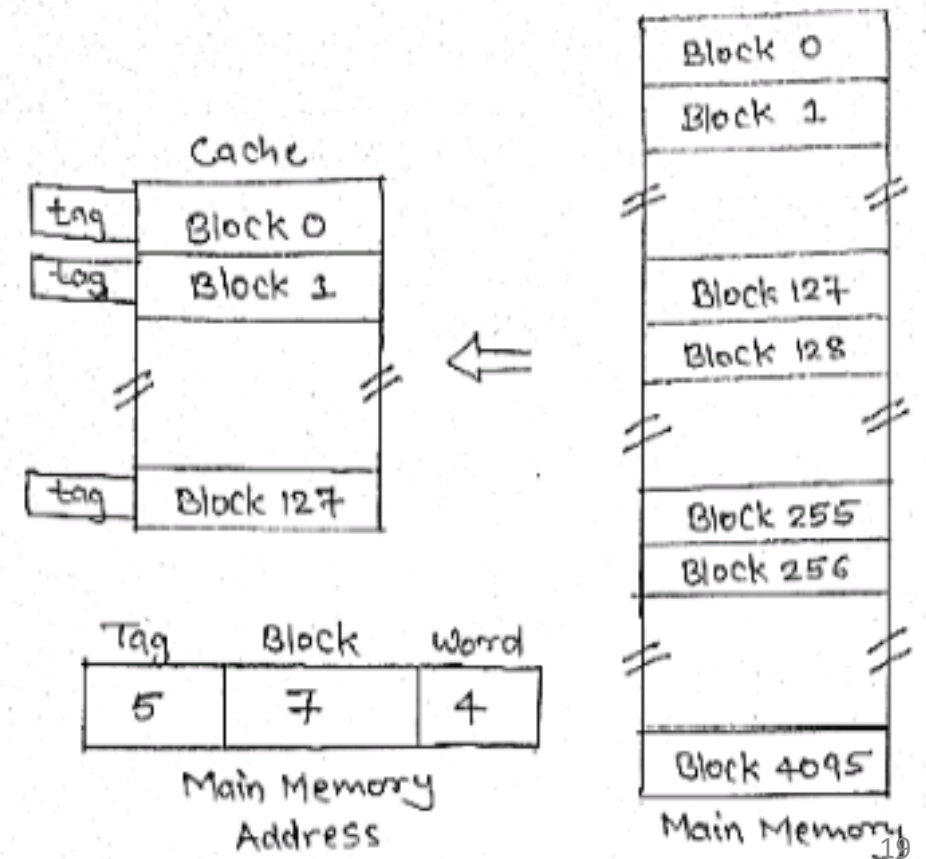 Cache
tag
Block 0
tag
Block 1
tag
Block 127
Tag Block Word
5 7 4
Main Memory
Address
Block 0
Block 1
Block 127
Block 128
Block 255
Block 256
Block 4095
Main Memory
19